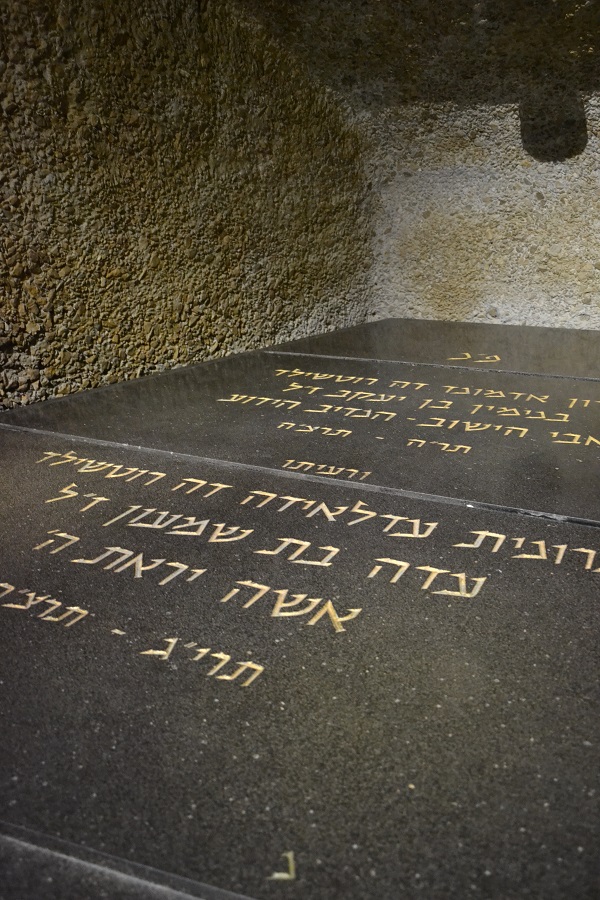 פ״נ
רון אדמונד דה רוטשילד
בנימין בן יעקב ז״ל
אבי הישוב - הנדיב הידוע
תר״ה - תרצ״ה
ורעיתו
רונית עדלאידה דה רוטשילד
עדה בת שמעון ז״ל
אשה יראת ה׳
תרי״ג -